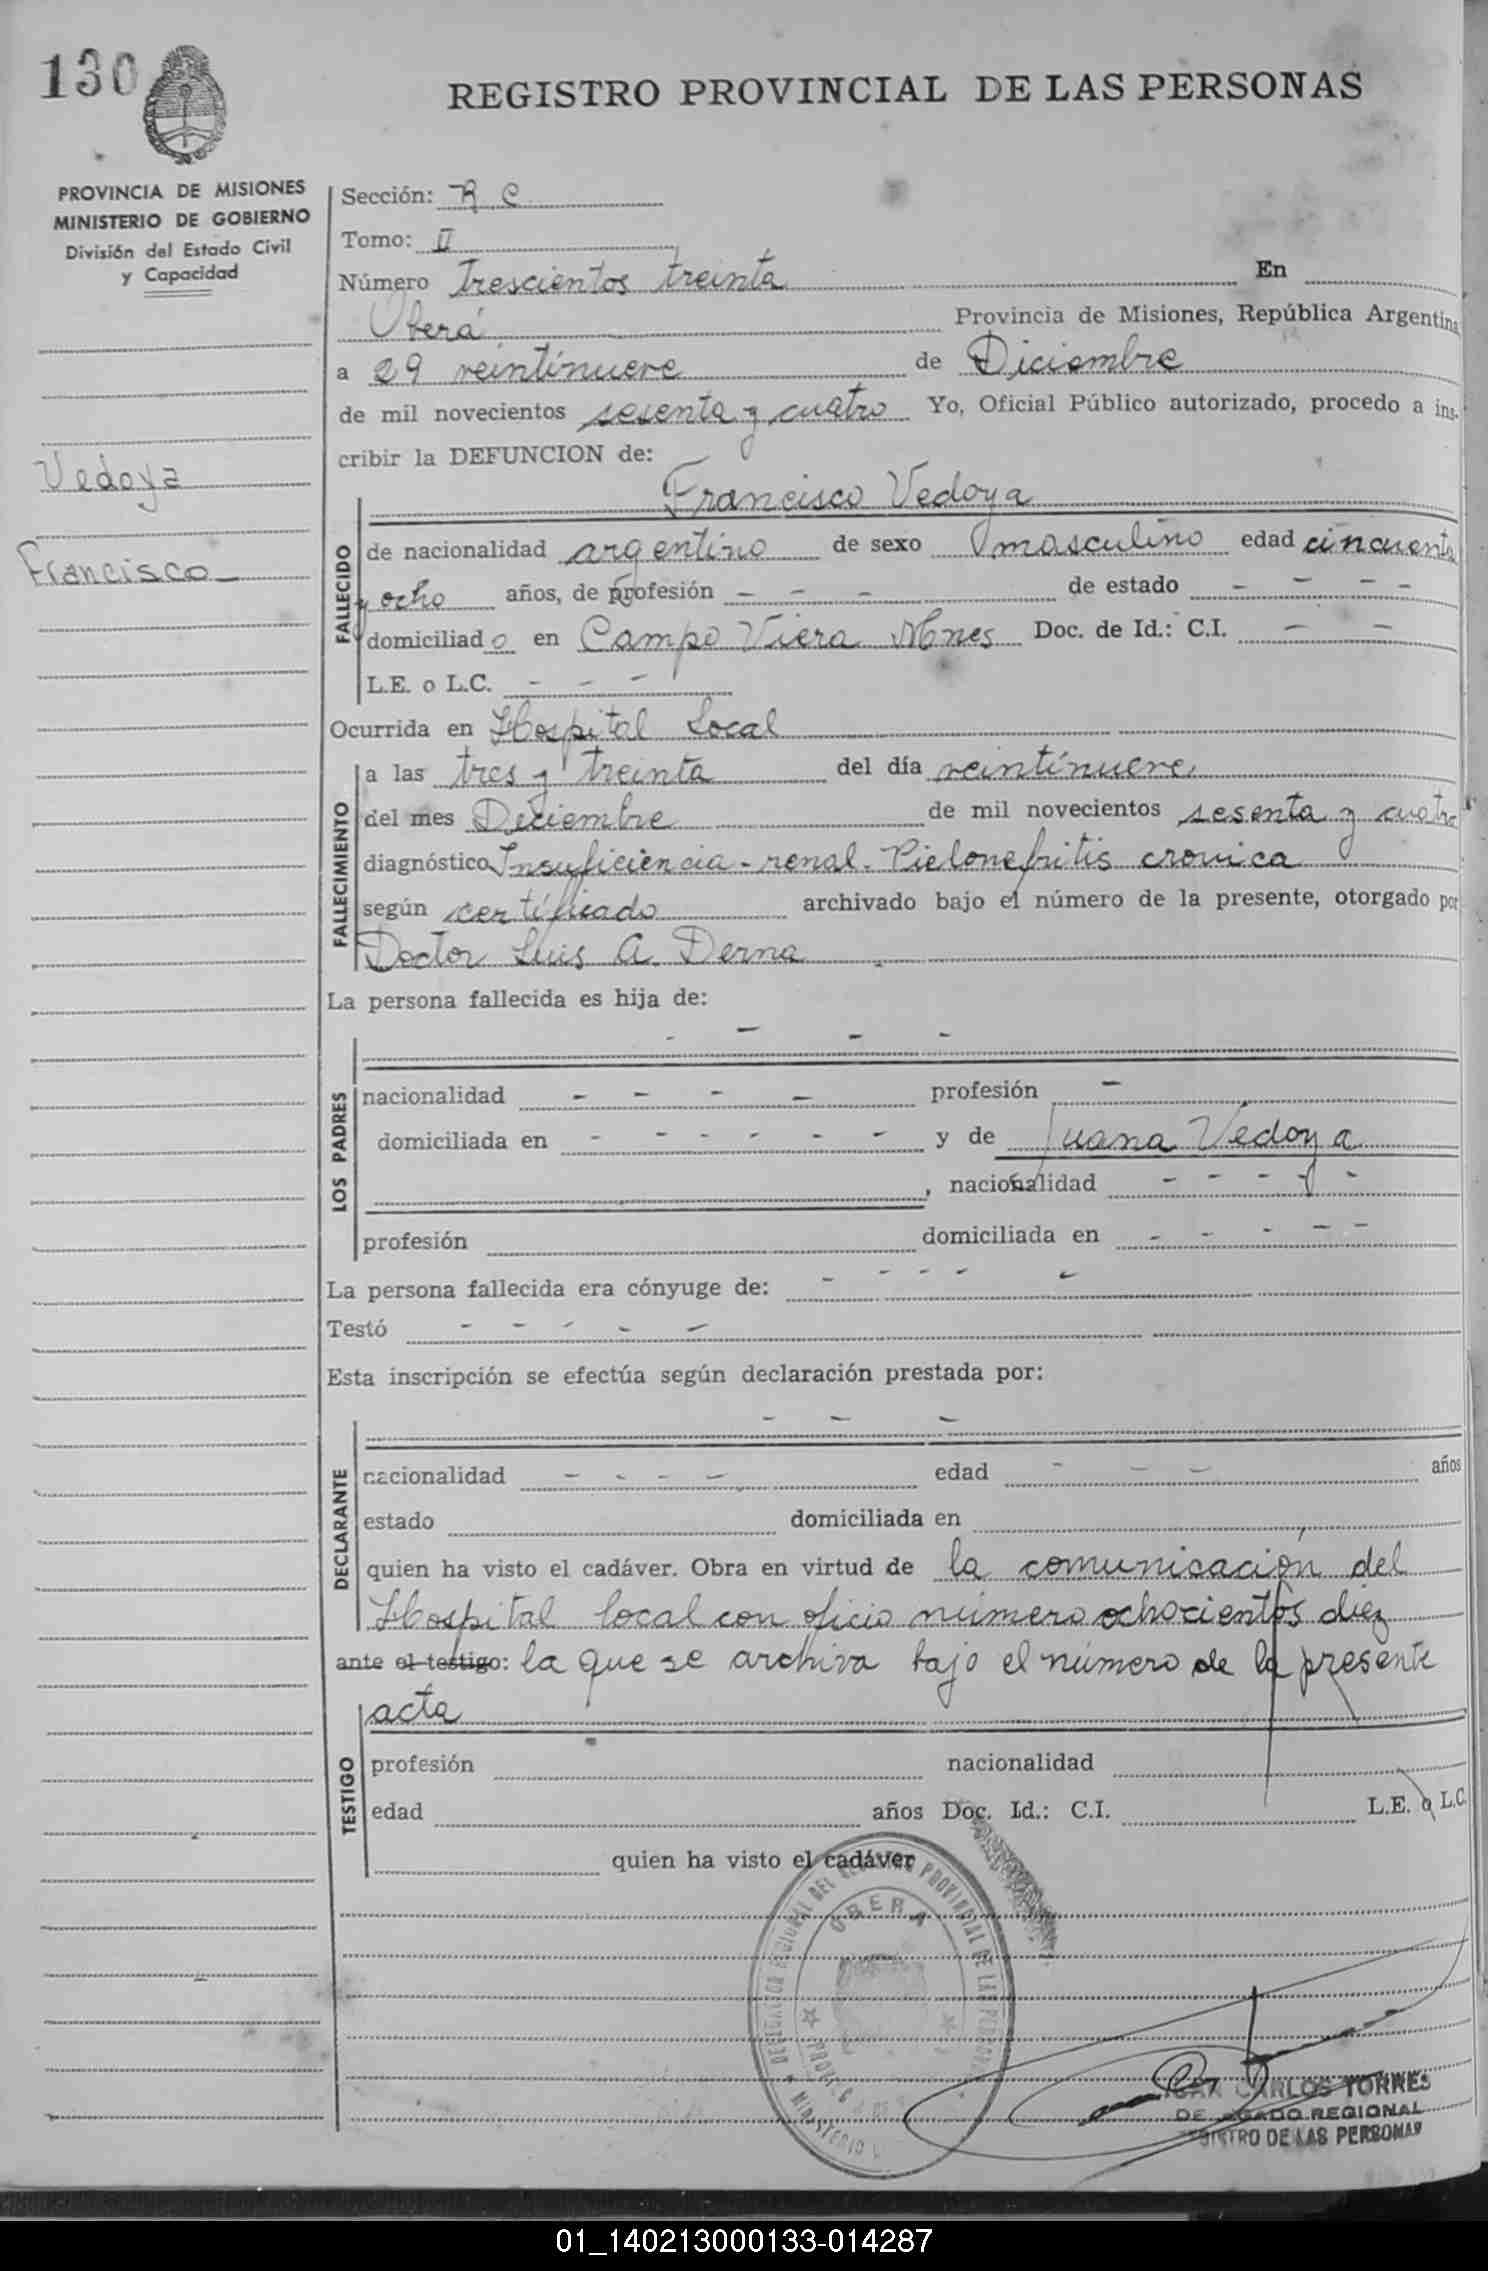 130
REGISTRO PROVINCIAL DE LAS PERSONAS
PROVINCIA DE MISIONES
MINISTERIO DE GOBIERNO
División del Estado Civil
y Capacidad
Vedoya
Francisco
Sección: R C
Tomo: II
Número Trescientos treinta En
Oberá Provincia de Misiones, República Argentina
a 29 veintinueve de Diciembre
de mil novecientos sesenta y cuatro Yo, Oficial Público autorizado, procedo a ins-
cribir la DEFUNCION de:
Francisco Vedoya
FALLECIDO
de nacionalidad argentino de sexo masculino edad cincuenta
y ocho años, de profesión - - - de estado - - - -
domiciliado en Campo Viera Mnes Doc. de Id.: C.I. - -
L.E. o L.C. - - -
Ocurrida en Hospital Local
FALLECIMIENTO
a las tres y treinta del día veintinueve
del mes Diciembre de mil novecientos sesenta y cuatro
diagnóstico Insuficiencia - renal - Pielonefritis cronica
según certificado archivado bajo el número de la presente, otorgado por
Doctor Luis A. Derna
La persona fallecida es hija de:
- - - -
LOS PADRES
nacionalidad - - - - profesión -
domiciliada en - - - - - - y de Juana Vedoya
, nacionalidad - - - - -
profesión domiciliada en - - - - -
La persona fallecida era cónyuge de: - - - - -
Testó - - - - -
Esta inscripción se efectúa según declaración prestada por:
- - -
DECLARANTE
nacionalidad - - - - edad - - - años
estado domiciliada en
quien ha visto el cadáver. Obra en virtud de la comunicación del
Hospital local con oficio número ochocientos diez
ante el testigo: la que se archiva bajo el número de la presente
acta
TESTIGO
profesión nacionalidad
edad años Doc. Id.: C.I. L.E. o L.C.
quien ha visto el cadáver
DELEGACION REGIONAL DEL REGISTRO PROVINCIAL DE LAS PERSONAS
OBERA
MINISTERIO
JUAN CARLOS TORRES
DELEGADO REGIONAL
REGISTRO DE LAS PERSONAS
01_140213000133-014287